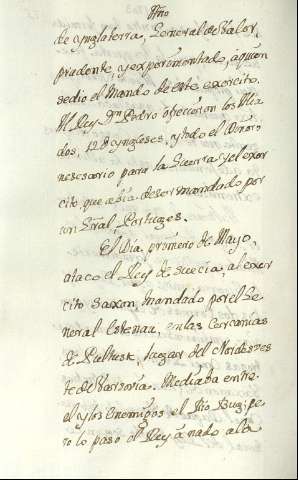 Año
de Ynglaterra, General de Valor,
prudente, y experimentado, aquien
sedio el Mando de este exercito.
Al Rey Dn Pedro ofrecieron los Alia
dos, 12 @ Yngleses, y todo el Dinero
nescesario para la Guerra y el exer
cito, que avia de ser mandado por
un Gral, Portuges.
El Dia, primero de Mayo,
ataco el Rey de suecia, al exer
cito saxon, mandado por el Ge
neral Estenau, en las Cercanias
de Pultusk, lugar del Nordeste
de Varsovia. Mediaba entre
el y los enemigos el Rio Bug; pe
ro lo paso el Rey á nado á la